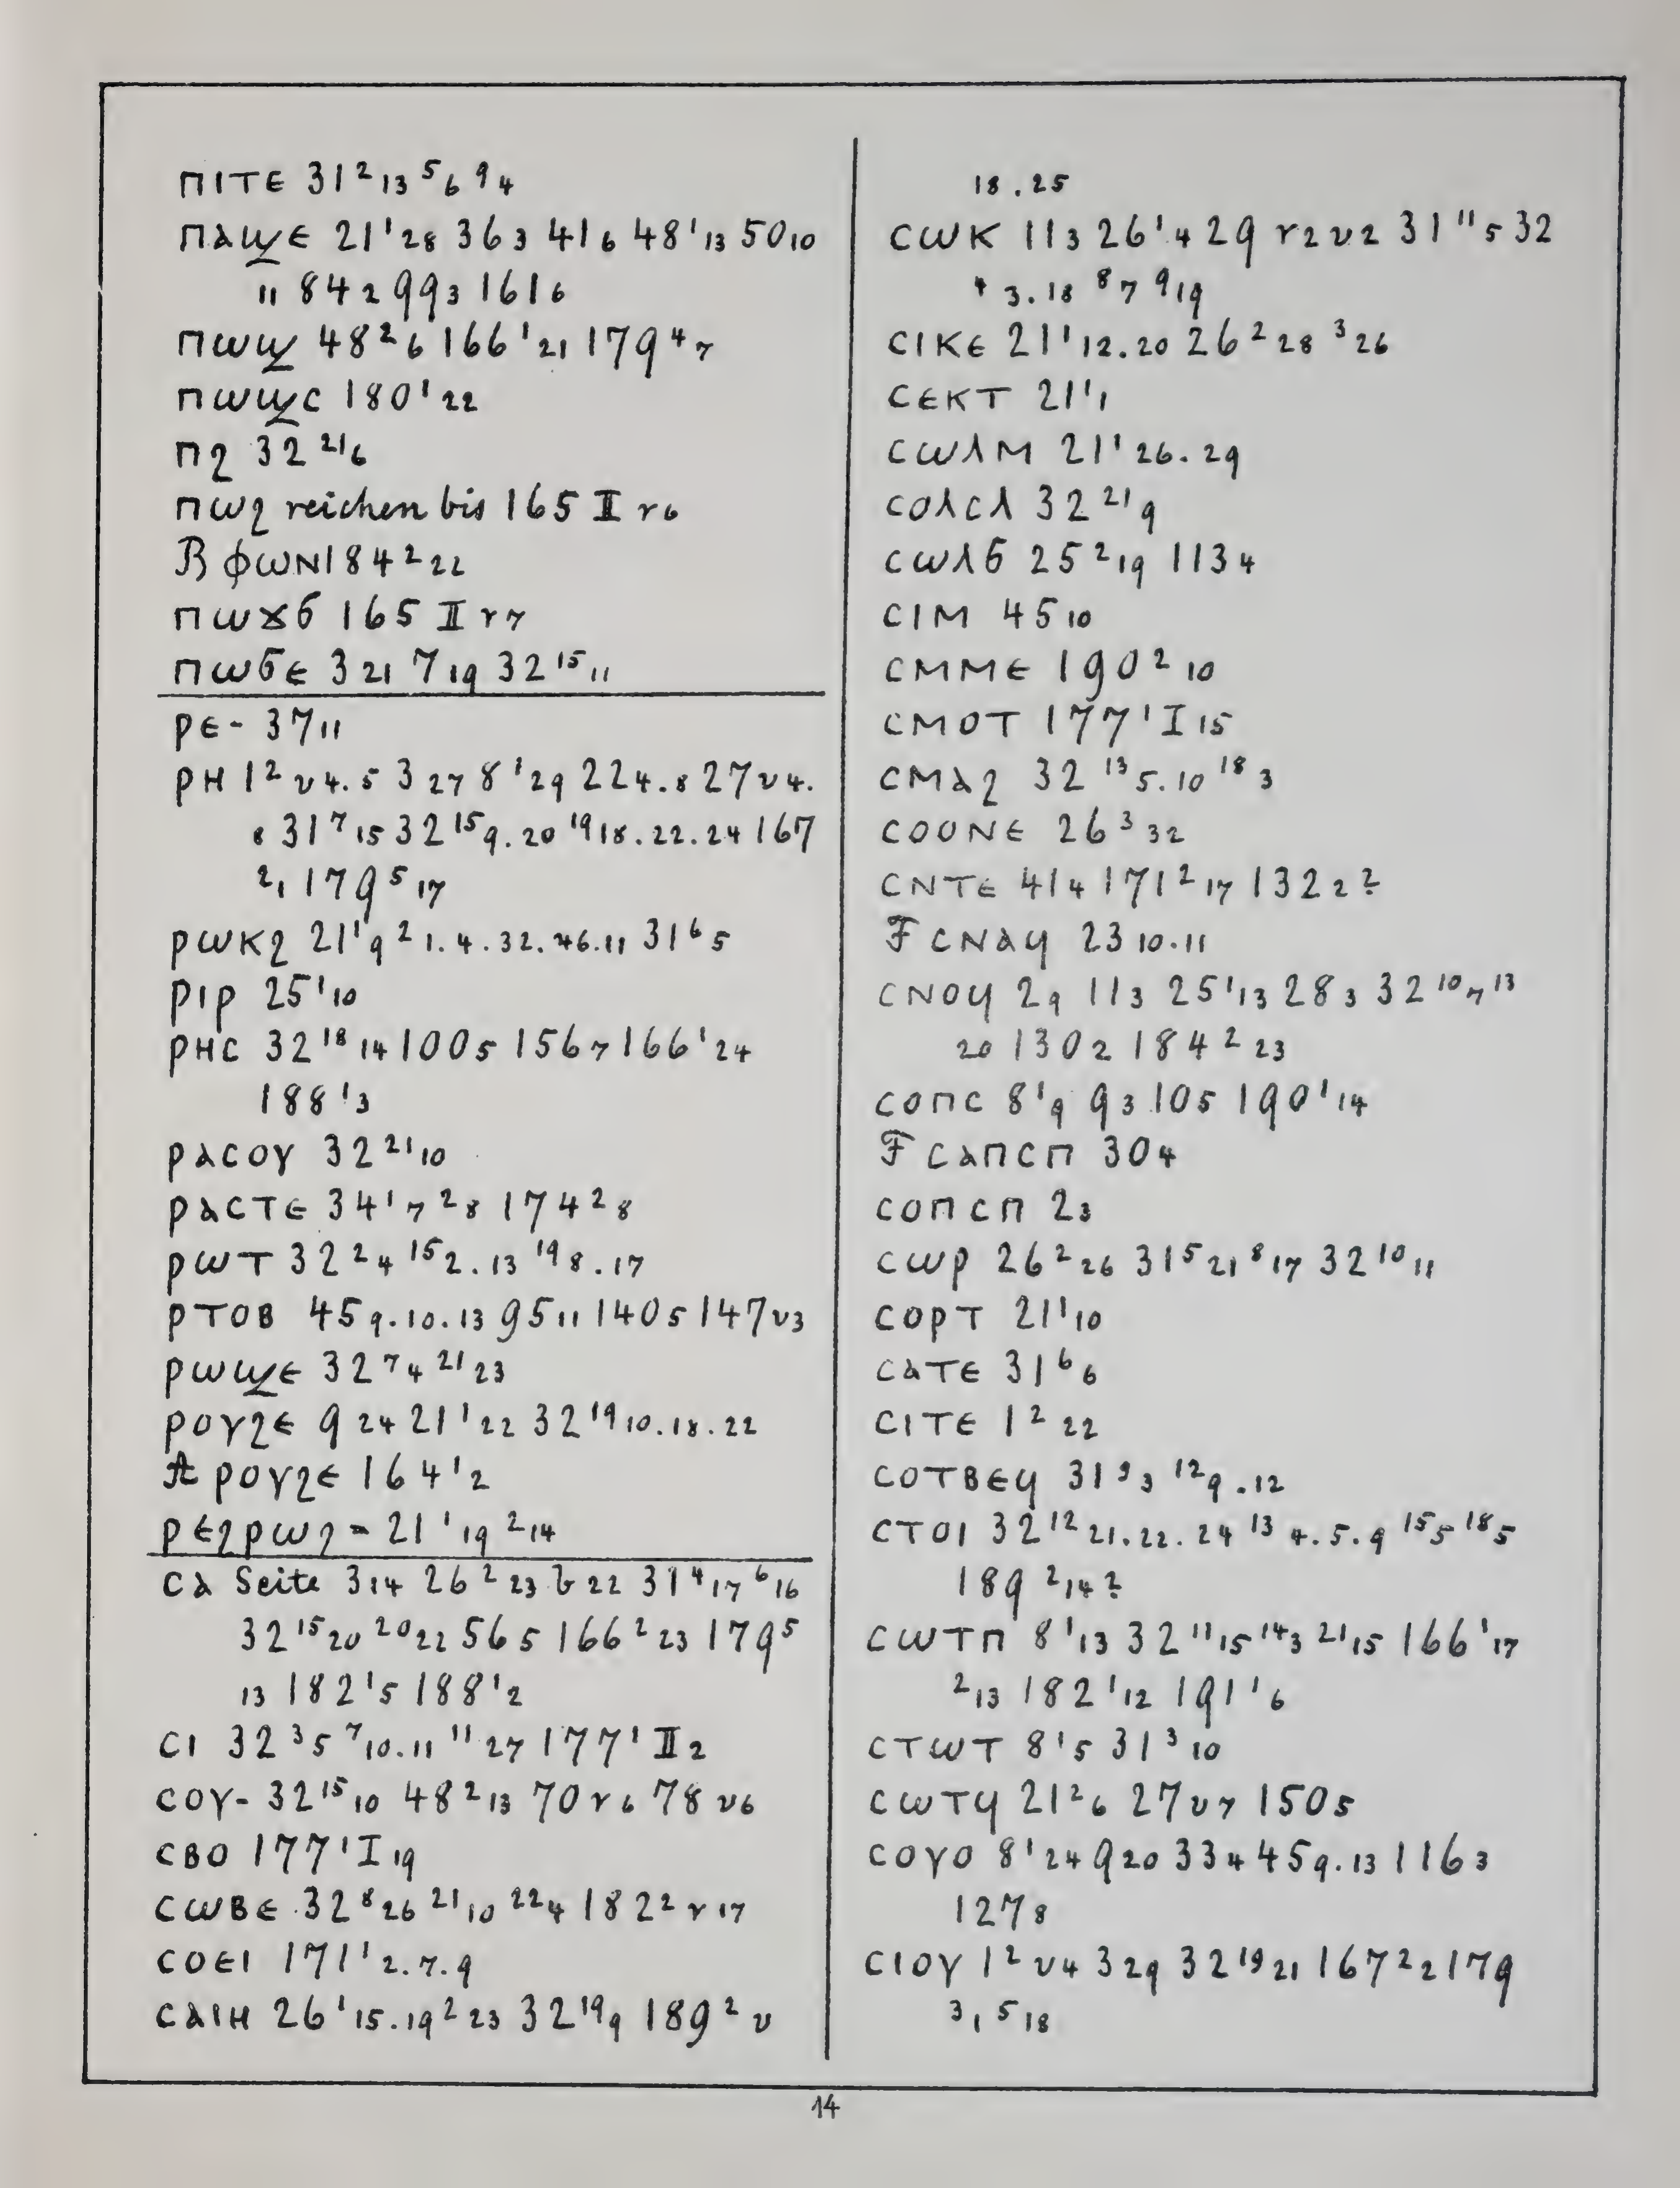 ⲡⲓⲧⲉ 31 ² 13 ⁵ 6 ⁹ 4
ⲡⲁϣⲉ 21 ¹ 28 36 3 41 6 48 ¹ 13 50 10
11 84 2 99 3 161 6
ⲡⲱϣ 48 ² 6 166 ¹ 21 179 ⁴ 7
ⲡⲱϣⲥ 180 ¹ 22
ⲡϩ 32 ²¹ 6
ⲡⲱϩ reichen bis 165 II r 6
B ⲫⲱⲛ 184 ² 22
ⲡⲱϫϭ 165 II r 7
ⲡⲱϭⲉ 3 21 7 19 32 ¹⁵ 11
ⲣⲉ- 37 11
ⲣⲏ 1 ² v 4. 5 3 27 8 ¹ 29 22 4. 8 27 v 4.
8 31 ⁷ 15 32 ¹⁵ 9. 20 ¹⁹ 18. 22. 24 167
² 1 179 ⁵ 17
ⲣⲱⲕϩ 21 ¹ 9 ² 1. 4. 32. 46. 11 31 ⁶ 5
ⲣⲓⲣ 25 ¹ 10
ⲣⲏⲥ 32 ¹⁸ 14 100 5 156 7 166 ¹ 24
188 ¹ 3
ⲣⲁⲥⲟⲩ 32 ²¹ 10
ⲣⲁⲥⲧⲉ 34 ¹ 7 ² 8 174 ² 8
ⲣⲱⲧ 32 ² 4 ¹⁵ 2. 13 ¹⁹ 8. 17
ⲣⲧⲟⲃ 45 9. 10. 13 95 11 140 5 147 v 3
ⲣⲱϣⲉ 32 ⁷ 4 ²¹ 23
ⲣⲟⲩϩⲉ 9 24 21 ¹ 22 32 ¹⁹ 10. 18. 22
A ⲣⲟⲩϩⲉ 164 ¹ 2
ⲣⲉϩⲣⲱϩ = 21 ¹ 19 ² 14
ⲥⲁ Seite 3 14 26 ² 23 b 22 31 ⁴ 17 ⁶ 16
32 ¹⁵ 20 ²⁰ 22 56 5 166 ² 23 179 ⁵
13 182 ¹ 5 188 ¹ 2
ⲥⲓ 32 ³ 5 ⁷ 10. 11 ¹¹ 27 177 ¹ II 2
ⲥⲟⲩ- 32 ¹⁵ 10 48 ² 13 70 r 6 78 v 6
ⲥⲃⲟ 177 ¹ I 19
ⲥⲱⲃⲉ 32 ⁸ 26 ²¹ 10 ²² 4 182 ² r 17
ⲥⲟⲉⲓ 171 ¹ 2. 7. 9
ⲥⲁⲓⲏ 26 ¹ 15. 19 ² 23 32 ¹⁹ 9 189 ² v
18. 25
ⲥⲱⲕ 11 3 26 ¹ 4 29 r 2 v 2 31 ¹¹ 5 32
⁴ 3. 18 ⁸ 7 ⁹ 19
ⲥⲓⲕⲉ 21 ¹ 12. 20 26 ² 28 ³ 26
ⲥⲉⲕⲧ 21 ¹ 1
ⲥⲱⲗⲙ 21 ¹ 26. 29
ⲥⲟⲗⲥⲗ 32 ²¹ 9
ⲥⲱⲗϭ 25 ² 19 113 4
ⲥⲓⲙ 45 10
ⲥⲙⲙⲉ 190 ² 10
ⲥⲙⲟⲧ 177 ¹ I 15
ⲥⲙⲁϩ 32 ¹³ 5. 10 ¹⁸ 3
ⲥⲟⲟⲛⲉ 26 ³ 32
ⲥⲛⲧⲉ 41 4 171 ² 17 132 2 ?
F ⲥⲛⲁϥ 23 10. 11
ⲥⲛⲟϥ 2 9 11 3 25 ¹ 13 28 3 32 ¹⁰ 7 ¹³
20 130 2 184 ² 23
ⲥⲟⲡⲥ 8 ¹ 9 9 3 105 190 ¹ 14
F ⲥⲁⲡⲥⲡ 30 4
ⲥⲟⲡⲥⲡ 2 3
ⲥⲱⲣ 26 ² 26 31 ⁵ 21 ⁸ 17 32 ¹⁰ 11
ⲥⲟⲣⲧ 21 ¹ 10
ⲥⲁⲧⲉ 31 ⁶ 6
ⲥⲓⲧⲉ 1 ² 22
ⲥⲟⲧⲃⲉϥ 31 ⁹ 3 ¹² 9. 12
ⲥⲧⲟⲓ 32 ¹² 21. 22. 24 ¹³ 4. 5. 9 ¹⁵ 5 ¹⁸ 5
189 ² 14 ?
ⲥⲱⲧⲡ 8 ¹ 13 32 ¹¹ 15 ¹⁴ 3 ²¹ 15 166 ¹ 17
² 13 182 ¹ 12 191 ¹ 6
ⲥⲧⲱⲧ 8 ¹ 5 31 ³ 10
ⲥⲱⲧϥ 21 ² 6 27 v 7 150 5
ⲥⲟⲩⲟ 8 ¹ 24 9 20 33 4 45 9. 13 116 3
127 8
ⲥⲓⲟⲩ 1 ² v 4 3 29 32 ¹⁹ 21 167 ² 2 179
³ 1 ⁵ 18
14